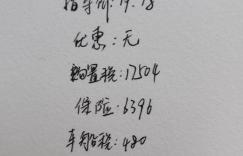 指导价:19.18
优惠:无
购置税:17504
保险:6396
车船税:480